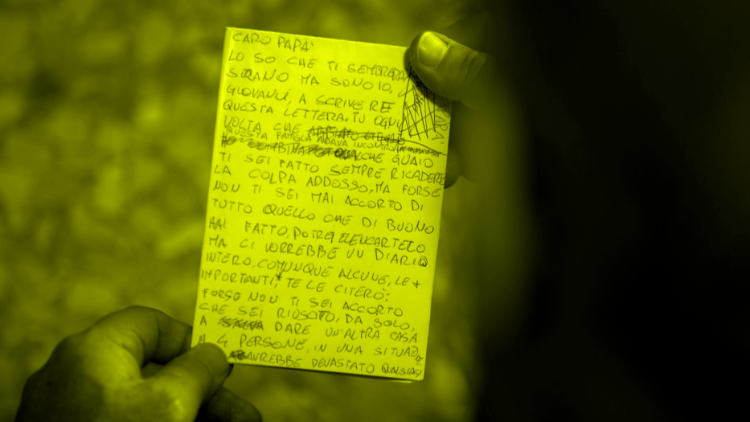 CARO PAPA'
LO SO CHE TI SEMBRERA
STRANO MA SONO IO,
GIOVANNI, A SCRIVERE
QUESTA LETTERA. TU OGNI
VOLTA CHE
QUESTA FAMIGLIA
COMBINA QUALCHE GUAIO
TI SEI FATTO SEMPRE RICADERE
LA COLPA ADDOSSO, MA FORSE
NON TI SEI MAI ACCORTO DI
TUTTO QUELLO CHE DI BUONO
HAI FATTO, POTREI ELENCARTELO
MA CI VORREBBE UN DIARIO
INTERO. COMUNQUE ALCUNE, LE +
IMPORTANTI, TE LE CITERÒ:
FORSE NON TI SEI ACCORTO
CHE SEI RIUSCITO, DA SOLO,
A DARE UN'ALTRA CASA
A 4 PERSONE, IN UNA
AVREBBE DEVASTATO